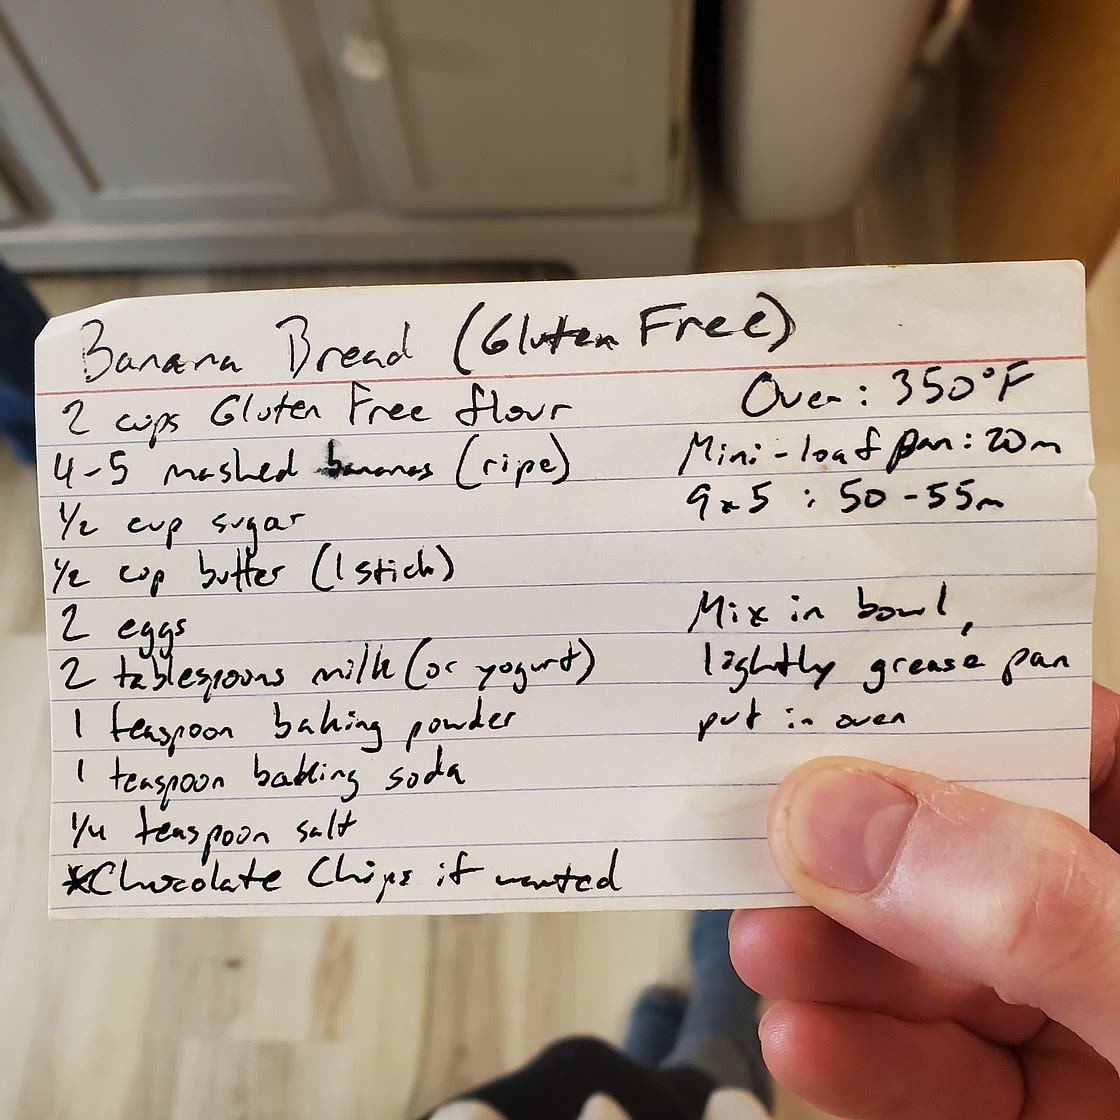 Banana Bread (Gluten Free)
2 cups Gluten Free flour
4-5 mashed bananas (ripe)
1/2 cup sugar
1/2 cup butter (1 stick)
2 eggs
2 tablespoons milk (or yogurt)
1 teaspoon baking powder
1 teaspoon baking soda
1/4 teaspoon salt
*Chocolate Chips if wanted
Oven: 350°F
Mini-loaf pan: 20m
9x5 : 50-55m
Mix in bowl,
lightly grease pan
put in oven